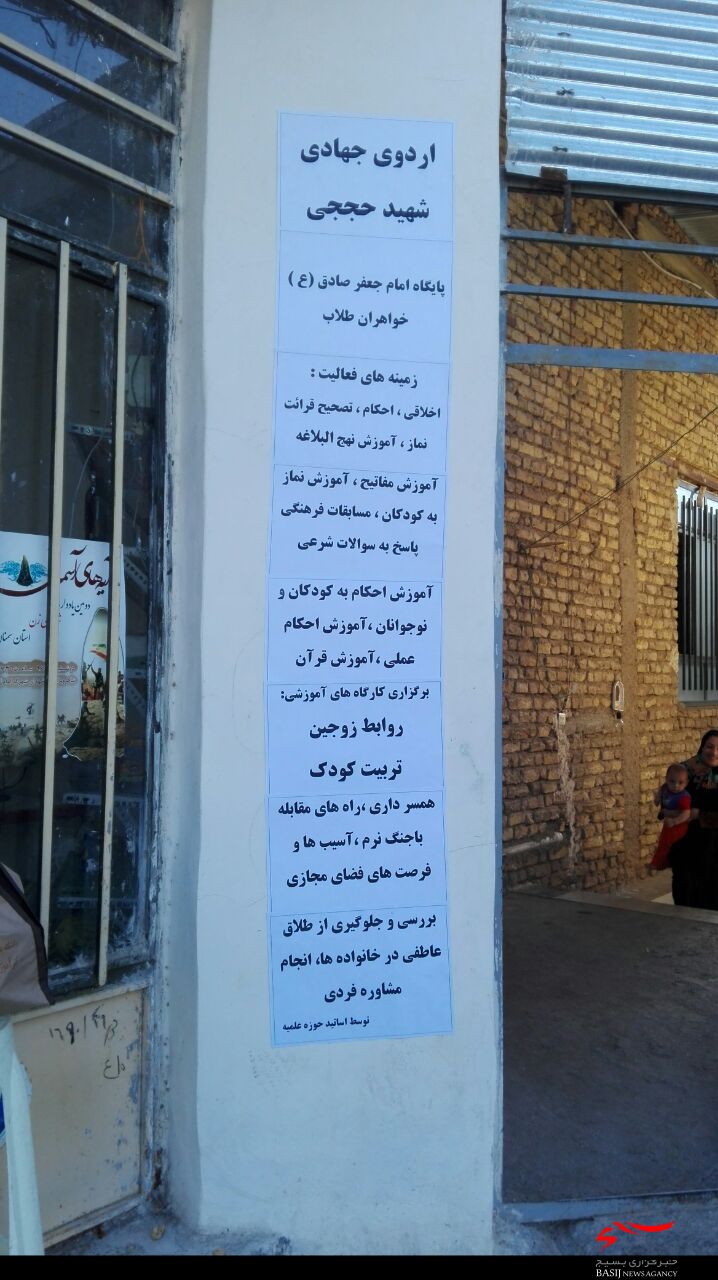 اردوی جهادی
شهید حججی
پایگاه امام جعفر صادق (ع )
خواهران طلاب
زمینه های فعالیت :
اخلاقی ، احکام ، تصحیح قرائت
نماز ، آموزش نهج البلاغه
آموزش مفاتیح ، آموزش نماز
به کودکان ، مسابقات فرهنگی
پاسخ به سوالات شرعی
آموزش احکام به کودکان و
نوجوانان ،آموزش احکام
عملی ،آموزش قرآن
برگزاری کارگاه های آموزشی:
روابط زوجین
تربیت کودک
همسر داری ،راه های مقابله
باجنگ نرم ،آسیب ها و
فرصت های فضای مجازی
بررسی و جلوگیری از طلاق
عاطفی در خانواده ها، انجام
مشاوره فردی
توسط اساتید حوزه علمیه
دومین یادوار
استان سمنان
خبرگزاری بسیج
BASIJ NEWS AGANCY